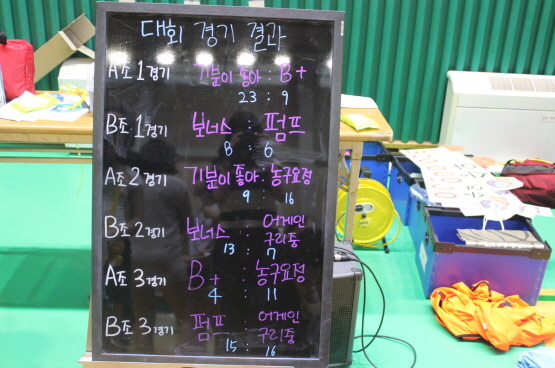 대회 경기 결과
A조 1경기 기분이 좋아 : B+
23 : 9
B조 1경기 보너스 : 펌프
8 : 6
A조 2경기 기분이 좋아 : 농구요정
9 : 16
B조 2경기 보너스 : 어게인 구리중
13 : 7
A조 3경기 B+ : 농구요정
4 : 11
B조 3경기 펌프 : 어게인 구리중
15 : 16